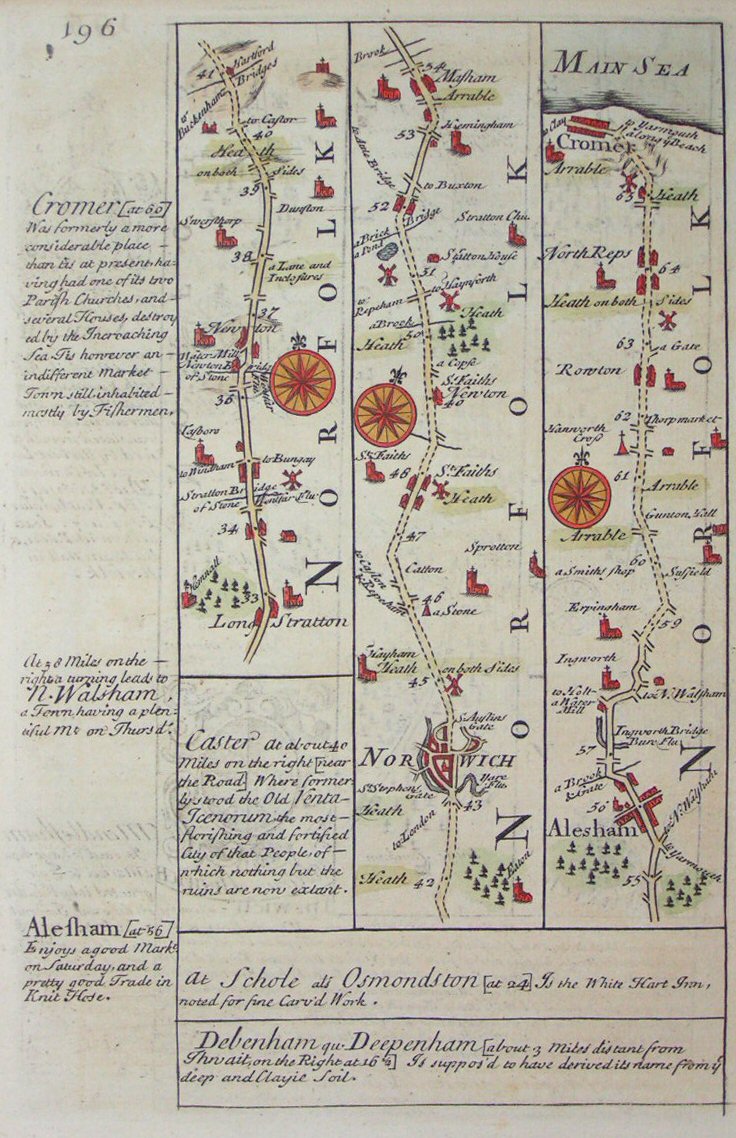 196
Cromer [at 66]
Was formerly a more
considerable place
than tis at present, ha-
ving had one of its two
Parish Churches, and
several Houses, destroy
ed by the Incroaching
Sea Tis however an
indifferent Market
Town still inhabited
mostly by Fishermen.
At 58 Miles on the
right a turning leads to
N. Walsham,
a Town having a plen-
tiful Mt on Thursd:
Alesham [at 56]
Enjoys a good Markt
on Saturday, and a
pretty good Trade in
Knit Hose.
41
Hartford
Bridges
to
Buckenham
to Castor
40
Heath
on both Sides
39
Dunston
Swersthorp
38
a Lane and
Inclosures
37
Newton
Newton
of Stone
36
Tasboro
to Windham
to Bungay
Stratton Bridge
of Stone
34
33
Long Stratton
NORFOLK
Caster At about 40
Miles on the right [near
the Road] Where former-
ly stood the Old Venta-
Icenorum the most
florishing and fortified
City of that People, of
which nothing but the
ruins are now extant.
Brook
54
Masham
Arrable
53
Heemingham
to Buxton
52
Bridge
Stratton Chu.
a Brick
51
to Haynforth
to
Repeham
Heath
a Brook
50
Heath
a Copse
St. Faiths
Newton
49
St. Faiths
48
St. Faiths
Heath
47
Sprotton
Catton
46
a Stone
Hayham
Heath on both Sides
45
St. Austins
Gate
NORWICH
St. Stephens
Gate
Yare
Flu
43
Heath
to London
Heath 42
Eaton
NORFOLK
MAIN SEA
to Clay
to Yarmouth
along ye Beach
Cromer
Arrable
65
Heath
North Reps
64
Heath on both Sides
63
a Gate
Rowton
62
Thorpmarket
Hanworth
Cross
61
Arrable
Gunton Hall
Arrable
60
a Smiths shop
Susfield
Erpingham
59
Ingworth
to Holt
a Water
Mill
to N. Walsham
Ingworth Bridge
Bure Flu
57
a Brook
& Gate
56
Alesham
to N. Walsham
to Yarmouth
55
NORFOLK
At Schole als Osmondston [at 24] Is the White Hart Inn,
noted for fine Carv'd Work.
Debenham qu. Deepenham [about 3 Miles distant from
Thwait, on the Right at 16 1/2] Is suppos'd to have derived its name from ye
deep and Clayie Soil.